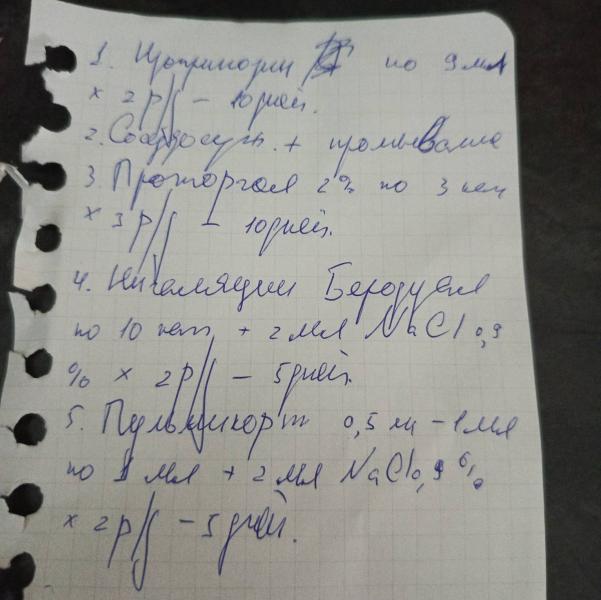 1. Изопринозин по 9 мл
x 2 р/д – 10 дней.
2. Сосудосуж. + промывание
3. Протаргол 2% по 3 кап
x 3 р/д – 10 дней.
4. Ингаляции Беродуал
по 10 кап + 2 мл NaCl 0,9
% x 2 р/д – 5 дней.
5. Пульмикорт 0,5 мг – 1 мл
по 1 мл + 2 мл NaCl 0,9 %
x 2 р/д – 5 дней.